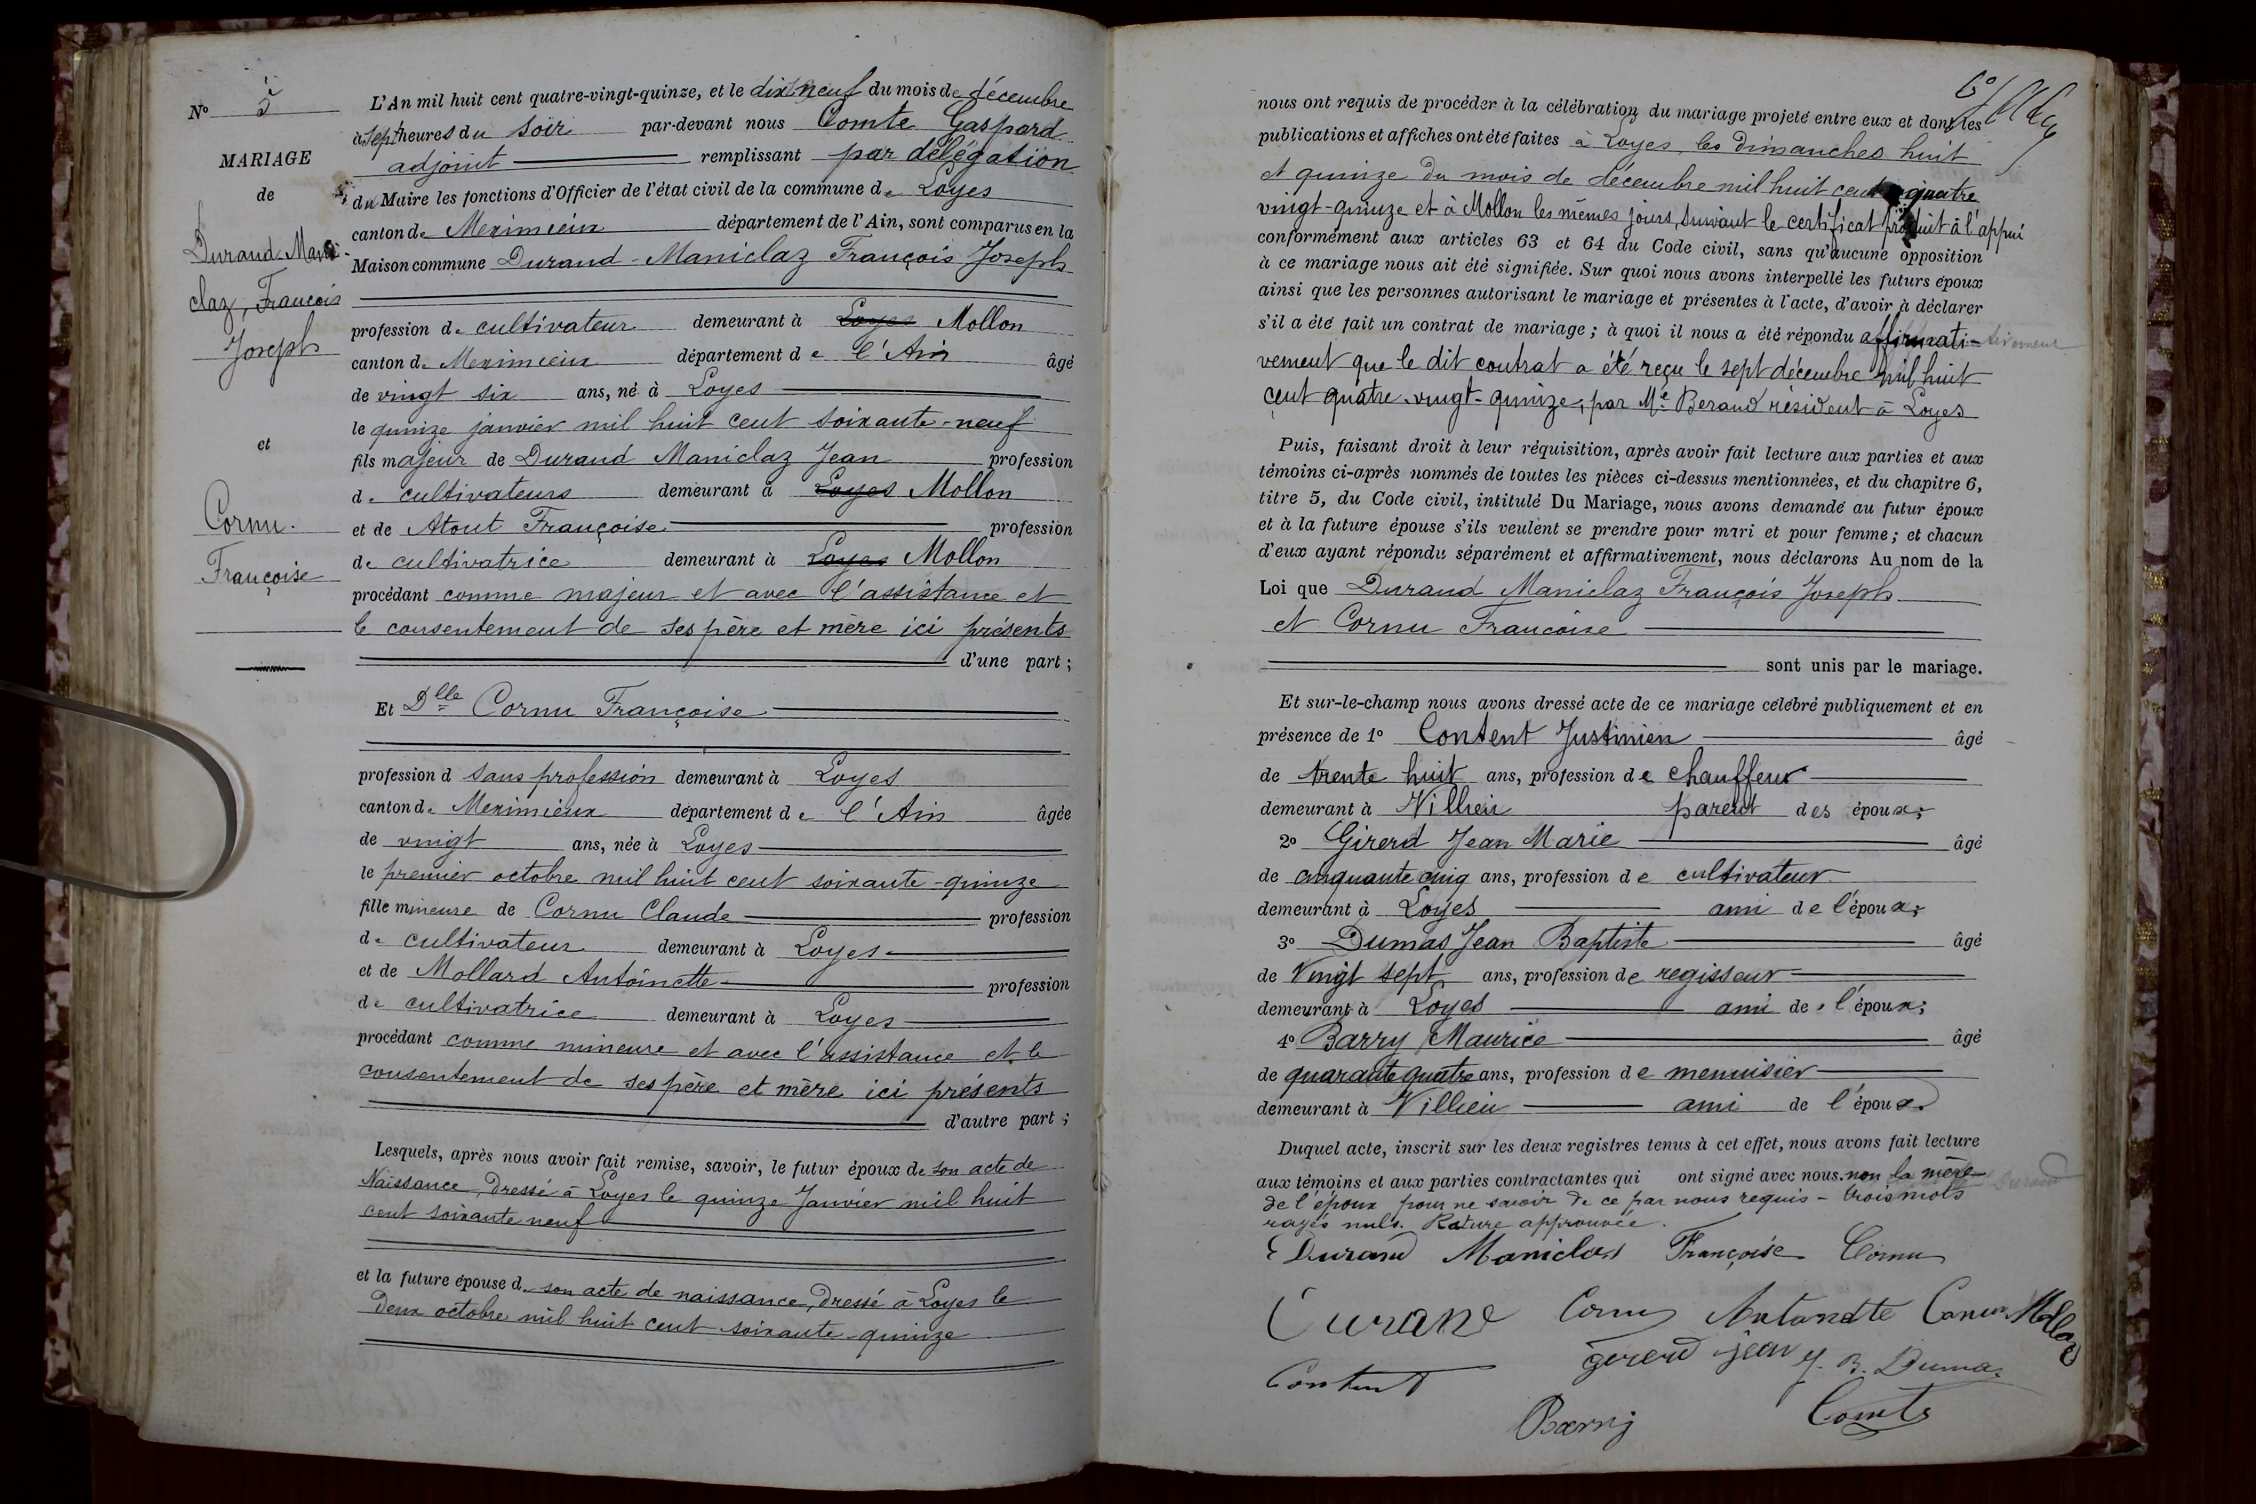 N° 5
MARIAGE
de
Durand-Mani-
claz, François
Joseph
et
Cornu
Françoise
L'An mil huit cent quatre-vingt-quinze, et le dix neuf du mois de décembre
à sept heures du soir par-devant nous Comte Gaspard
adjoint remplissant par délégation
du Maire les fonctions d'Officier de l'état civil de la commune de Loyes
canton de Meximieux département de l'Ain, sont comparus en la
Maison commune Durand-Maniclaz François Joseph
profession de cultivateur demeurant à Loyes Mollon
canton de Meximieux département de l'Ain âgé
de vingt six ans, né à Loyes
le quinze janvier mil huit cent soixante-neuf
fils majeur de Durand Maniclaz Jean profession
de cultivateurs demeurant à Loyes Mollon
et de Atout Françoise profession
de cultivatrice demeurant à Loyes Mollon
procédant comme majeur et avec l'assistance et
le consentement de ses père et mère ici présents
d'une part ;
Et Dlle Cornu Françoise
profession d sans profession demeurant à Loyes
canton de Meximieux département de l'Ain âgée
de vingt ans, née à Loyes
le premier octobre mil huit cent soixante-quinze
fille mineure de Cornu Claude profession
de cultivateur demeurant à Loyes
et de Mollard Antoinette profession
de cultivatrice demeurant à Loyes
procédant comme mineure et avec l'assistance et le
consentement de ses père et mère ici présents
d'autre part ;
Lesquels, après nous avoir fait remise, savoir, le futur époux de son acte de
Naissance, dressé à Loyes le quinze Janvier mil huit
cent soixante neuf
et la future épouse de son acte de naissance, dressé à Loyes le
deux octobre mil huit cent soixante-quinze
nous ont requis de procéder à la célébration du mariage projeté entre eux et dont les
publications et affiches ont été faites à Loyes, les dimanches huit
et quinze du mois de décembre mil huit cent quatre
vingt-quinze et à Mollon les mêmes jours, suivant le certificat produit à l'appui
conformément aux articles 63 et 64 du Code civil, sans qu'aucune opposition
à ce mariage nous ait été signifiée. Sur quoi nous avons interpellé les futurs époux
ainsi que les personnes autorisant le mariage et présentes à l'acte, d'avoir à déclarer
s'il a été fait un contrat de mariage ; à quoi il nous a été répondu affirmati-
vement que le dit contrat a été reçu le sept décembre mil huit
cent quatre-vingt-quinze, par Me Beraud résident à Loyes
Puis, faisant droit à leur réquisition, après avoir fait lecture aux parties et aux
témoins ci-après nommés de toutes les pièces ci-dessus mentionnées, et du chapitre 6,
titre 5, du Code civil, intitulé Du Mariage, nous avons demandé au futur époux
et à la future épouse s'ils veulent se prendre pour mari et pour femme ; et chacun
d'eux ayant répondu séparément et affirmativement, nous déclarons Au nom de la
Loi que Durand Maniclaz François Joseph
et Cornu Françoise
sont unis par le mariage.
Et sur-le-champ nous avons dressé acte de ce mariage célébré publiquement et en
présence de 1° Content Justinien âgé
de trente huit ans, profession de chauffeur
demeurant à Villieu parent des époux ;
2° Girerd Jean Marie âgé
de cinquante cinq ans, profession de cultivateur
demeurant à Loyes ami de l'époux ;
3° Dumas Jean Baptiste âgé
de Vingt sept ans, profession de regisseur
demeurant à Loyes ami de l'époux ;
4° Barry Maurice âgé
de quarante quatre ans, profession de menuisier
demeurant à Villieu ami de l'époux.
Duquel acte, inscrit sur les deux registres tenus à cet effet, nous avons fait lecture
aux témoins et aux parties contractantes qui ont signé avec nous. non la mère
de l'époux pour ne savoir de ce par nous requis - trois mots
rayés nuls. Rature approuvée.
Durand Maniclas Françoise Cornu
Durand Cornu Antoinette Cornu Mollard
gererd jean J. B. Dumas
Content
Barry Comte